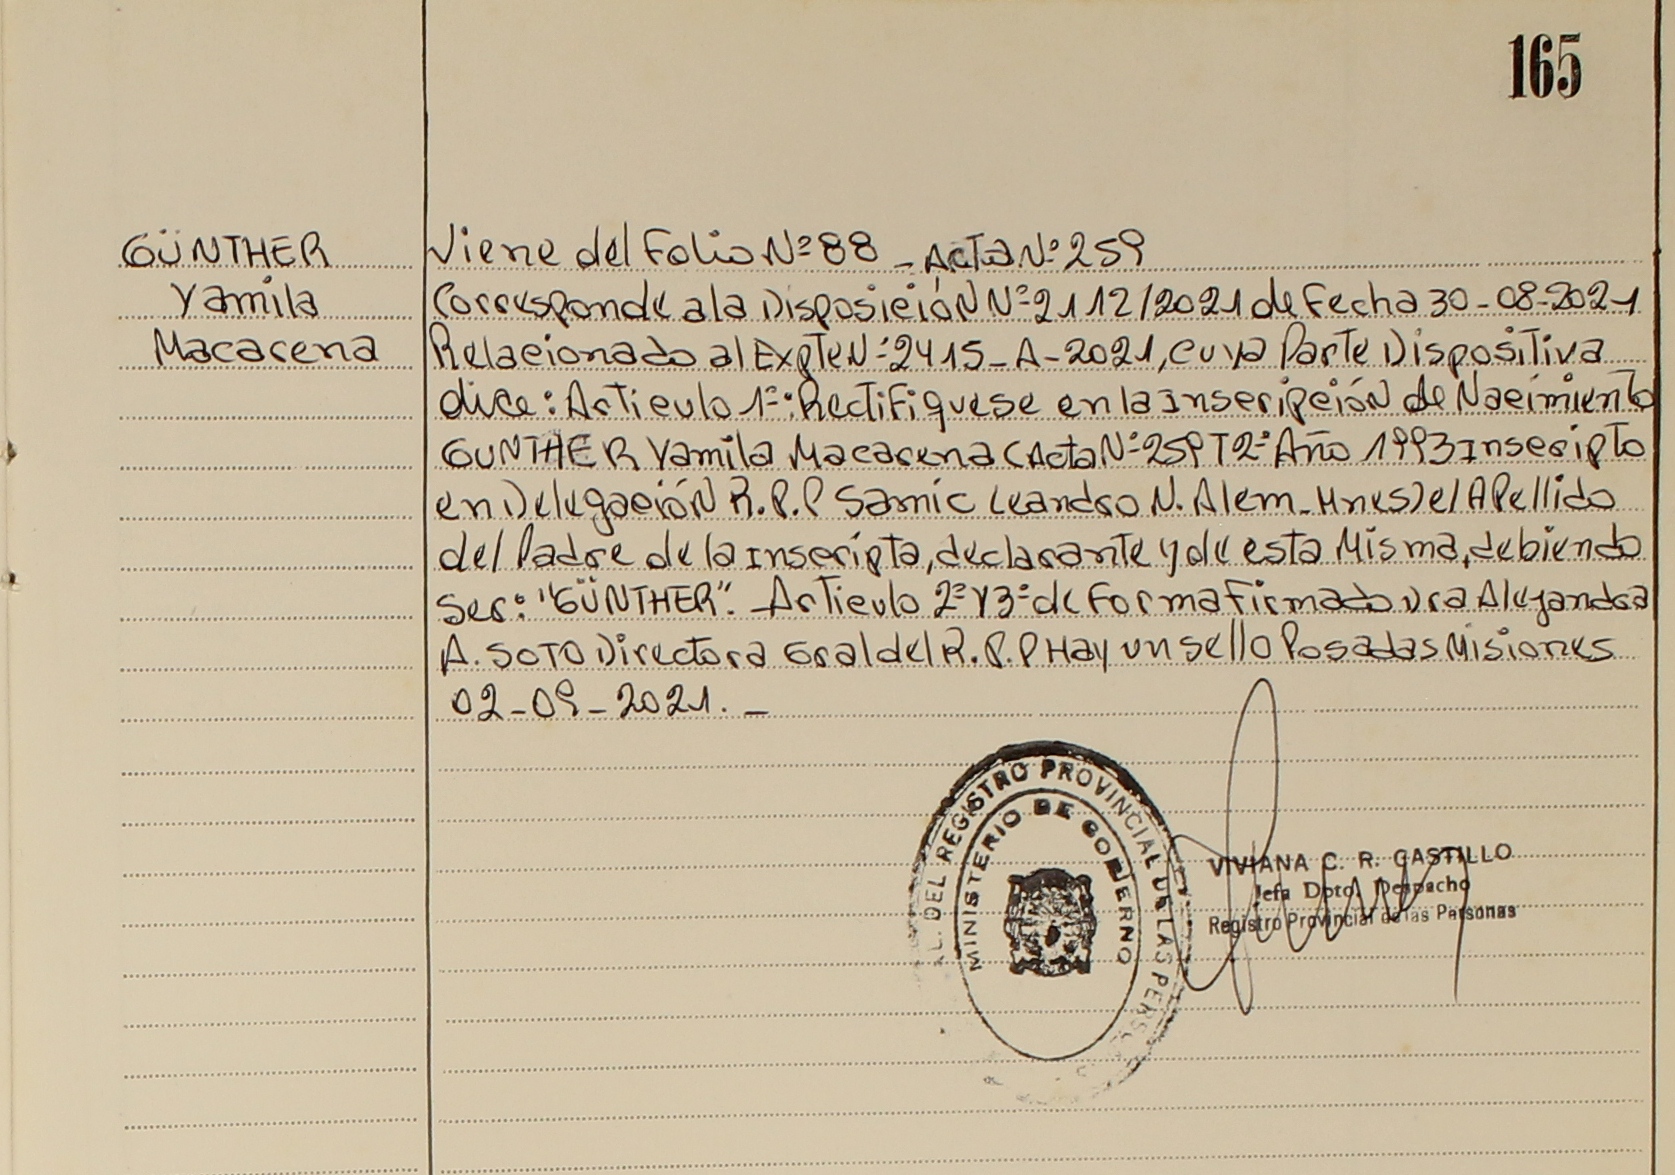 165
GÜNTHER
Yamila
Macarena
Viene del Folio Nº 88 _ Acta Nº 259
Corresponde a la Disposición Nº 2112/2021 de Fecha 30-08-2021
Relacionado al Expte Nº 2415_A-2021, cuya Parte Dispositiva
dice: Articulo 1º: Rectifiquese en la Inscripción de Nacimiento
GUNTHER Yamila Macarena (Acta Nº 259 T 2º Año 1993 Inscripto
en Delegación R.P.P Samic Leandro N. Alem_Mnes) el Apellido
del Padre de la Inscripta, declarante y de esta Misma, debiendo
ser: "GÜNTHER". _Articulo 2º y 3º de Forma Firmado Dra Alejandra
A. SOTO Directora Gral del R.P.P Hay un sello Posadas Misiones
02-09-2021._
DEL REGISTRO PROVINCIAL DE LAS
MINISTERIO DE GOBIERNO
VIVIANA C. R. CASTILLO
Jefa Dpto. Despacho
Registro Provincial de las Personas